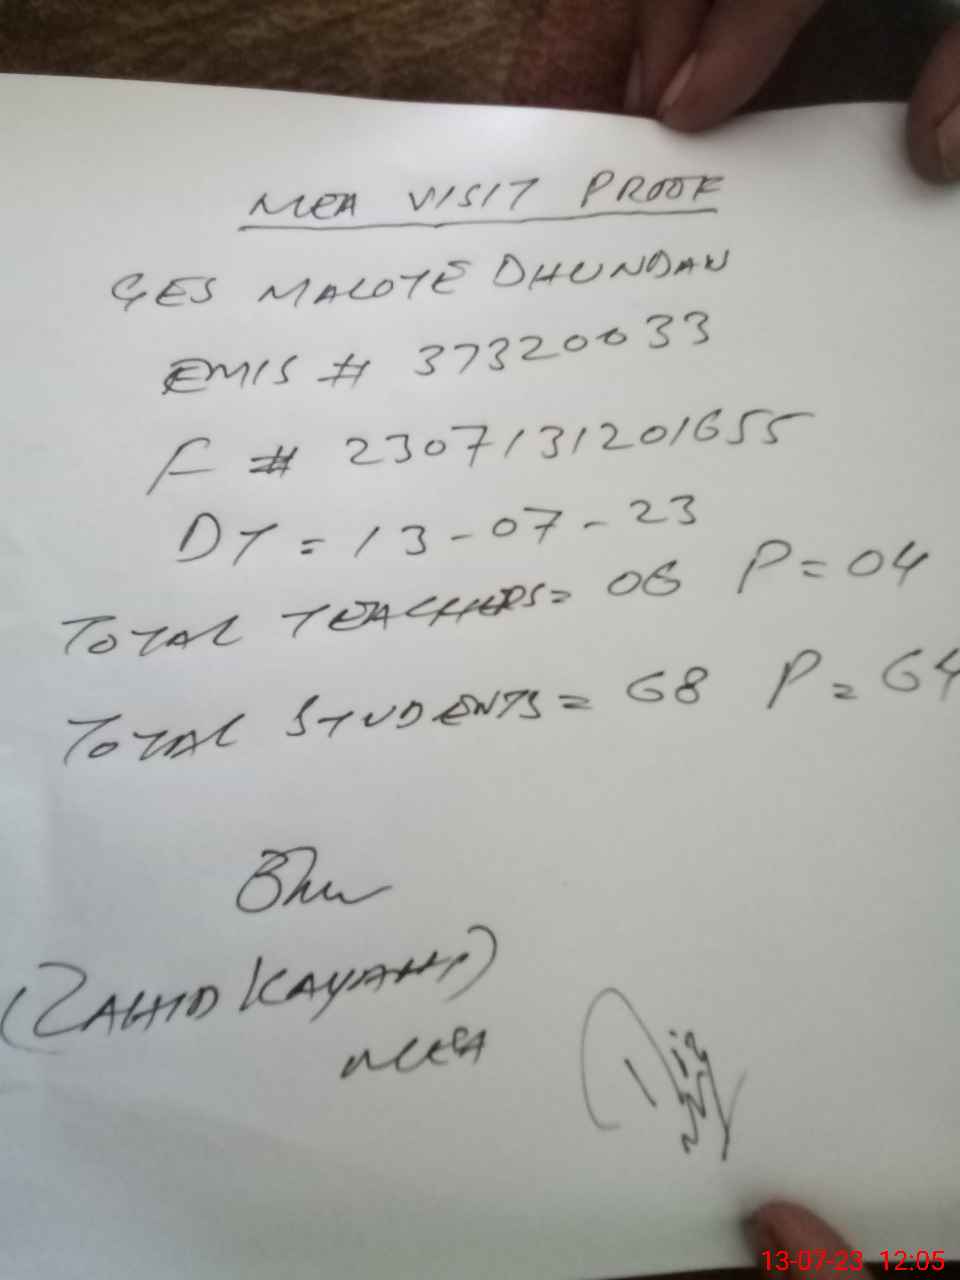 MEA VISIT PROOF
GES MALOTE DHUNDAN
EMIS # 37320033
F # 2307131201655
DT = 13-07-23
TOTAL TEACHERS = 06 P = 04
TOTAL STUDENTS = 68 P = 64
(ZAHID KAYAHI)
MEA
13-07-23 12:05